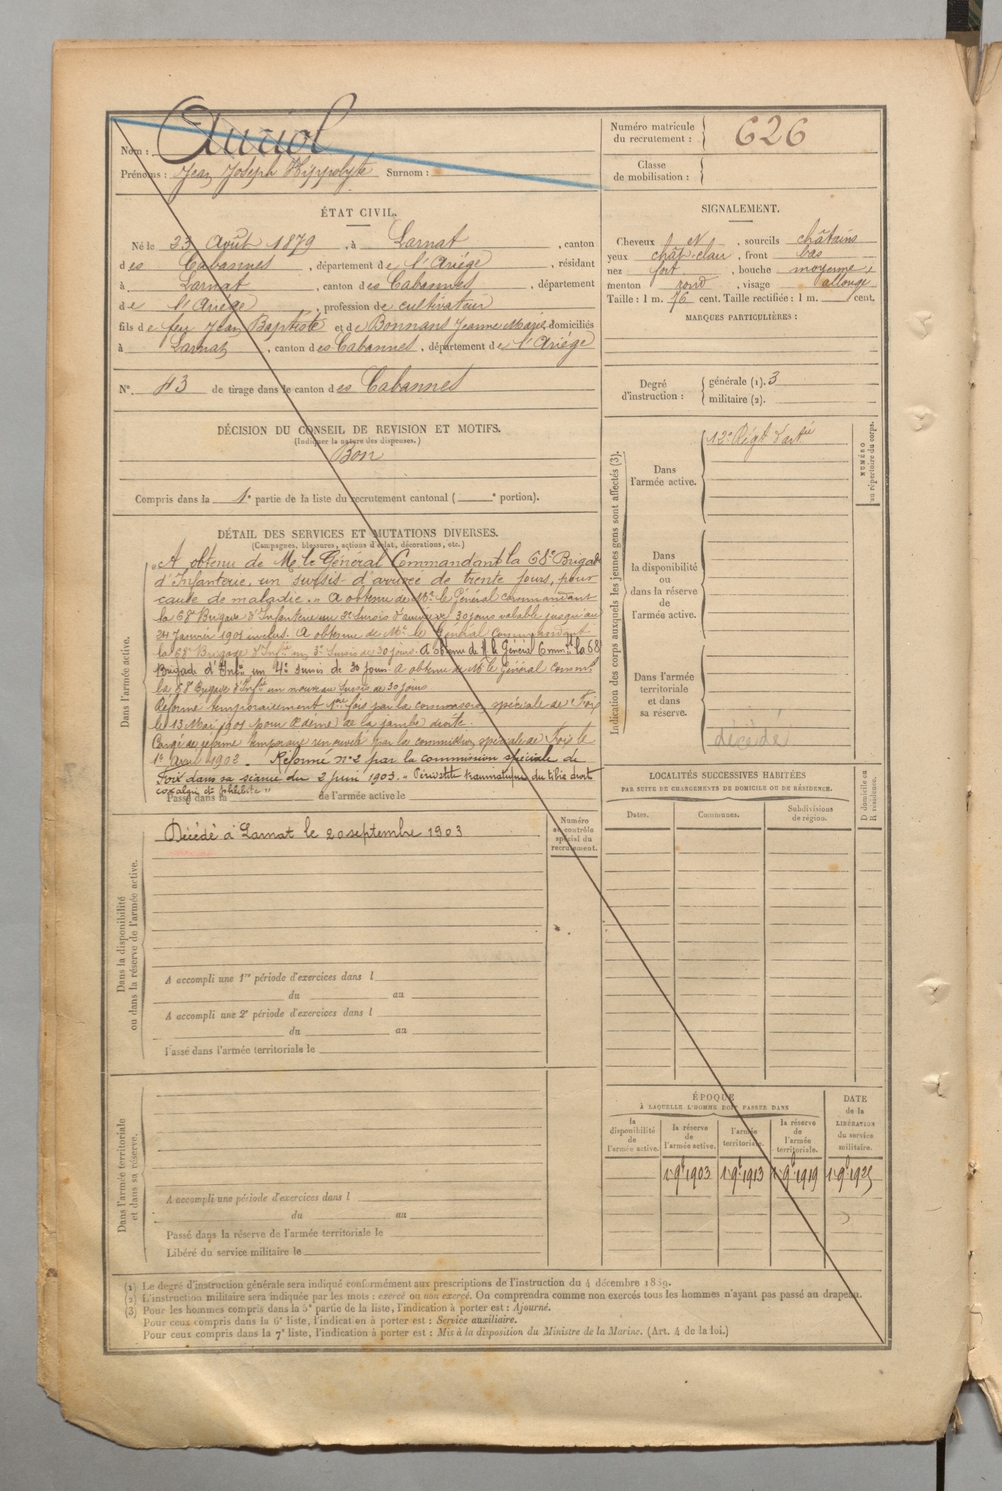 Nom : Auriol
Prénoms : Jean Joseph Hippolyte Surnom :
Numéro matricule du recrutement : 626
Classe de mobilisation :
ÉTAT CIVIL.
Né le 23 Août 1879, à Larnat, canton
des Cabannes, département de l'Ariège, résidant
à Larnat, canton des Cabannes, département
de l'Ariège, profession de cultivateur
fils de feu Jean Baptiste et de Bonnans Jeanne Marie, domiciliés
à Larnat, canton des Cabannes, département de l'Ariège
N° 43 de tirage dans le canton des Cabannes
DÉCISION DU CONSEIL DE REVISION ET MOTIFS.
(Indiquer la nature des dispenses.)
Bon
Compris dans la 1e partie de la liste du recrutement cantonal ( e portion).
DÉTAIL DES SERVICES ET MUTATIONS DIVERSES.
(Campagnes, blessures, actions d'éclat, décorations, etc.)
Dans l'armée active.
"A obtenu de M. le Général Commandant la 68e Brigade
d'Infanterie, un sursis d'arrivée de trente jours, pour
cause de maladie. " A obtenu de Mr. le Général commandant
la 68e Brigade d'Infanterie un 2e Sursis d'arrivée 30 jours valable jusqu'au
Janvier 1901 inclus. A obtenu de Mr. le Général Commandant
la 68e Brigade d'Infie un 3e Sursis de 30 jours. A obtenu de M. le Général Commdt la 68
Brigade d'Infie un 4e sursis de 30 jours A obtenu de M. le Général Commdt
la 68e Brigade d'Infie un nouveau Sursis de 30 jours
Réformé temporairement 1ere fois par la commission spéciale de Foix
le 13 Mai 1901 pour Œdème de la jambe droite.
Congé de réforme temporaire renouvelé par la commission spéciale de Foix le
1er Avril 1902. Réformé n° 2 par la commission spéciale de
Foix dans sa séance du 2 juin 1903. " Périostite traumatique du tibia droit
coxalgie dte phlébite "
Passé dans la de l'armée active le
Dans la disponibilité ou dans la réserve de l'armée active.
Décédé à Larnat le 20 septembre 1903
Numéro au contrôle spécial du recrutement.
A accompli une 1re période d'exercices dans l
du au
A accompli une 2e période d'exercices dans l
du au
Passé dans l'armée territoriale le
Dans l'armée territoriale et dans sa réserve.
A accompli une période d'exercices dans l
du au
Passé dans la réserve de l'armée territoriale le
Libéré du service militaire le
SIGNALEMENT.
Cheveux et, sourcils châtains
yeux chât-clair, front bas
nez fort, bouche moyenne,
menton rond, visage allongé
Taille : 1 m. 76 cent. Taille rectifiée : 1 m. cent.
MARQUES PARTICULIÈRES :
Degré d'instruction : générale (1). 3
militaire (2).
Indication des corps auxquels les jeunes gens sont affectés (3).
NUMÉRO au répertoire du corps.
Dans l'armée active. 12e Régt d'artie
Dans la disponibilité ou dans la réserve de l'armée active.
Dans l'armée territoriale et dans sa réserve.
décédé
LOCALITÉS SUCCESSIVES HABITÉES
PAR SUITE DE CHANGEMENTS DE DOMICILE OU DE RÉSIDENCE.
Dates. Communes. Subdivisions de région. D domicile ou R résidence.
ÉPOQUE
À LAQUELLE L'HOMME DOIT PASSER DANS
DATE de la LIBÉRATION du service militaire.
la disponibilité de l'armée active. la réserve de l'armée active. l'armée territoriale. la réserve de l'armée territoriale.
1 9bre 1903 1 9bre 1913 1 9bre 1919 1 9bre 1925
(1) Le degré d'instruction générale sera indiqué conformément aux prescriptions de l'instruction du 4 décembre 1889.
(2) L'instruction militaire sera indiquée par les mots : exercé ou non exercé. On comprendra comme non exercés tous les hommes n'ayant pas passé au drapeau.
(3) Pour les hommes compris dans la 5e partie de la liste, l'indication à porter est : Ajourné.
Pour ceux compris dans la 6e liste, l'indication à porter est : Service auxiliaire.
Pour ceux compris dans la 7e liste, l'indication à porter est : Mis à la disposition du Ministre de la Marine. (Art. 4 de la loi.)